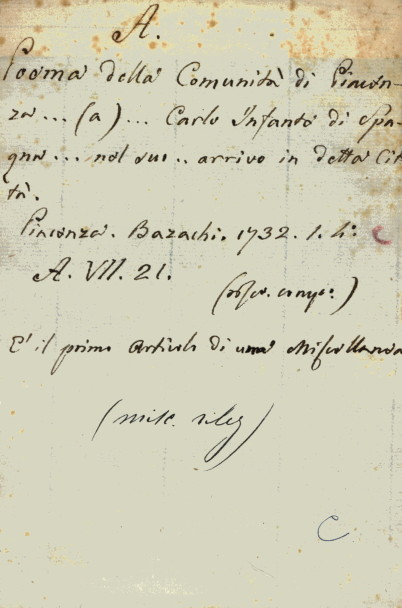 A.
Poema della Comunità di Piacen-
za... (a)... Carlo Infante di Spa-
gna... nel suo.. arrivo in detta Cit-
tà.
Piacenza. Bazachi. 1732. f. 4:
A. VII. 21.
E' il primo articolo di una Miscellanea
(misc.
C